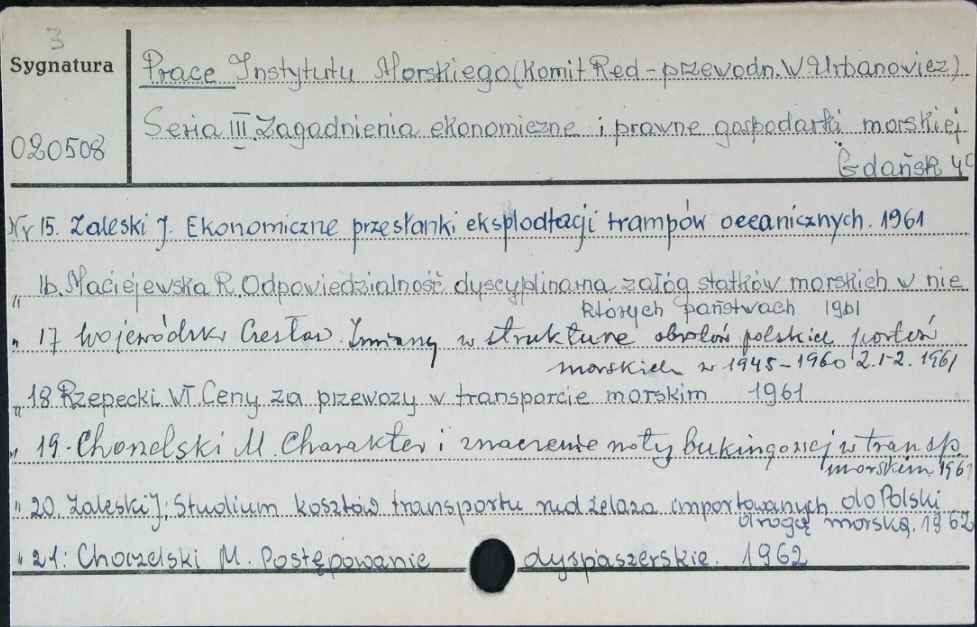 3
Sygnatura
Prace Instytutu Morskiego (Komit. Red - przewodn. W Urbanowicz)
020508
Seria III. Zagadnienia ekonomiczne i prawne gospodarki morskiej
Gdańsk 4°
Nr 15. Zaleski J. Ekonomiczne przesłanki eksplodtacji trampów oceanicznych. 1961
" 16. Maciejewska R. Odpowiedzialność dyscyplinarna załóg statków morskich w nie
których państwach 1961
" 17 Wojewódski Czesław. Zmiany w strukturze obrotów polskich portów
morskich w 1945-1960 z. 1-2. 1961
" 18 Rzepecki WŁ. Ceny za przewozy w transporcie morskim 1961
" 19. Chorzelski M. Charakter i znaczenie noty bukingowej w transp.
morskim 1961
" 20. Zaleski J. Studium kosztów transportu rud żelaza importowanych do Polski
drogą morską. 1962
" 21. Chorzelski M. Postępowanie dyspaszerskie. 1962